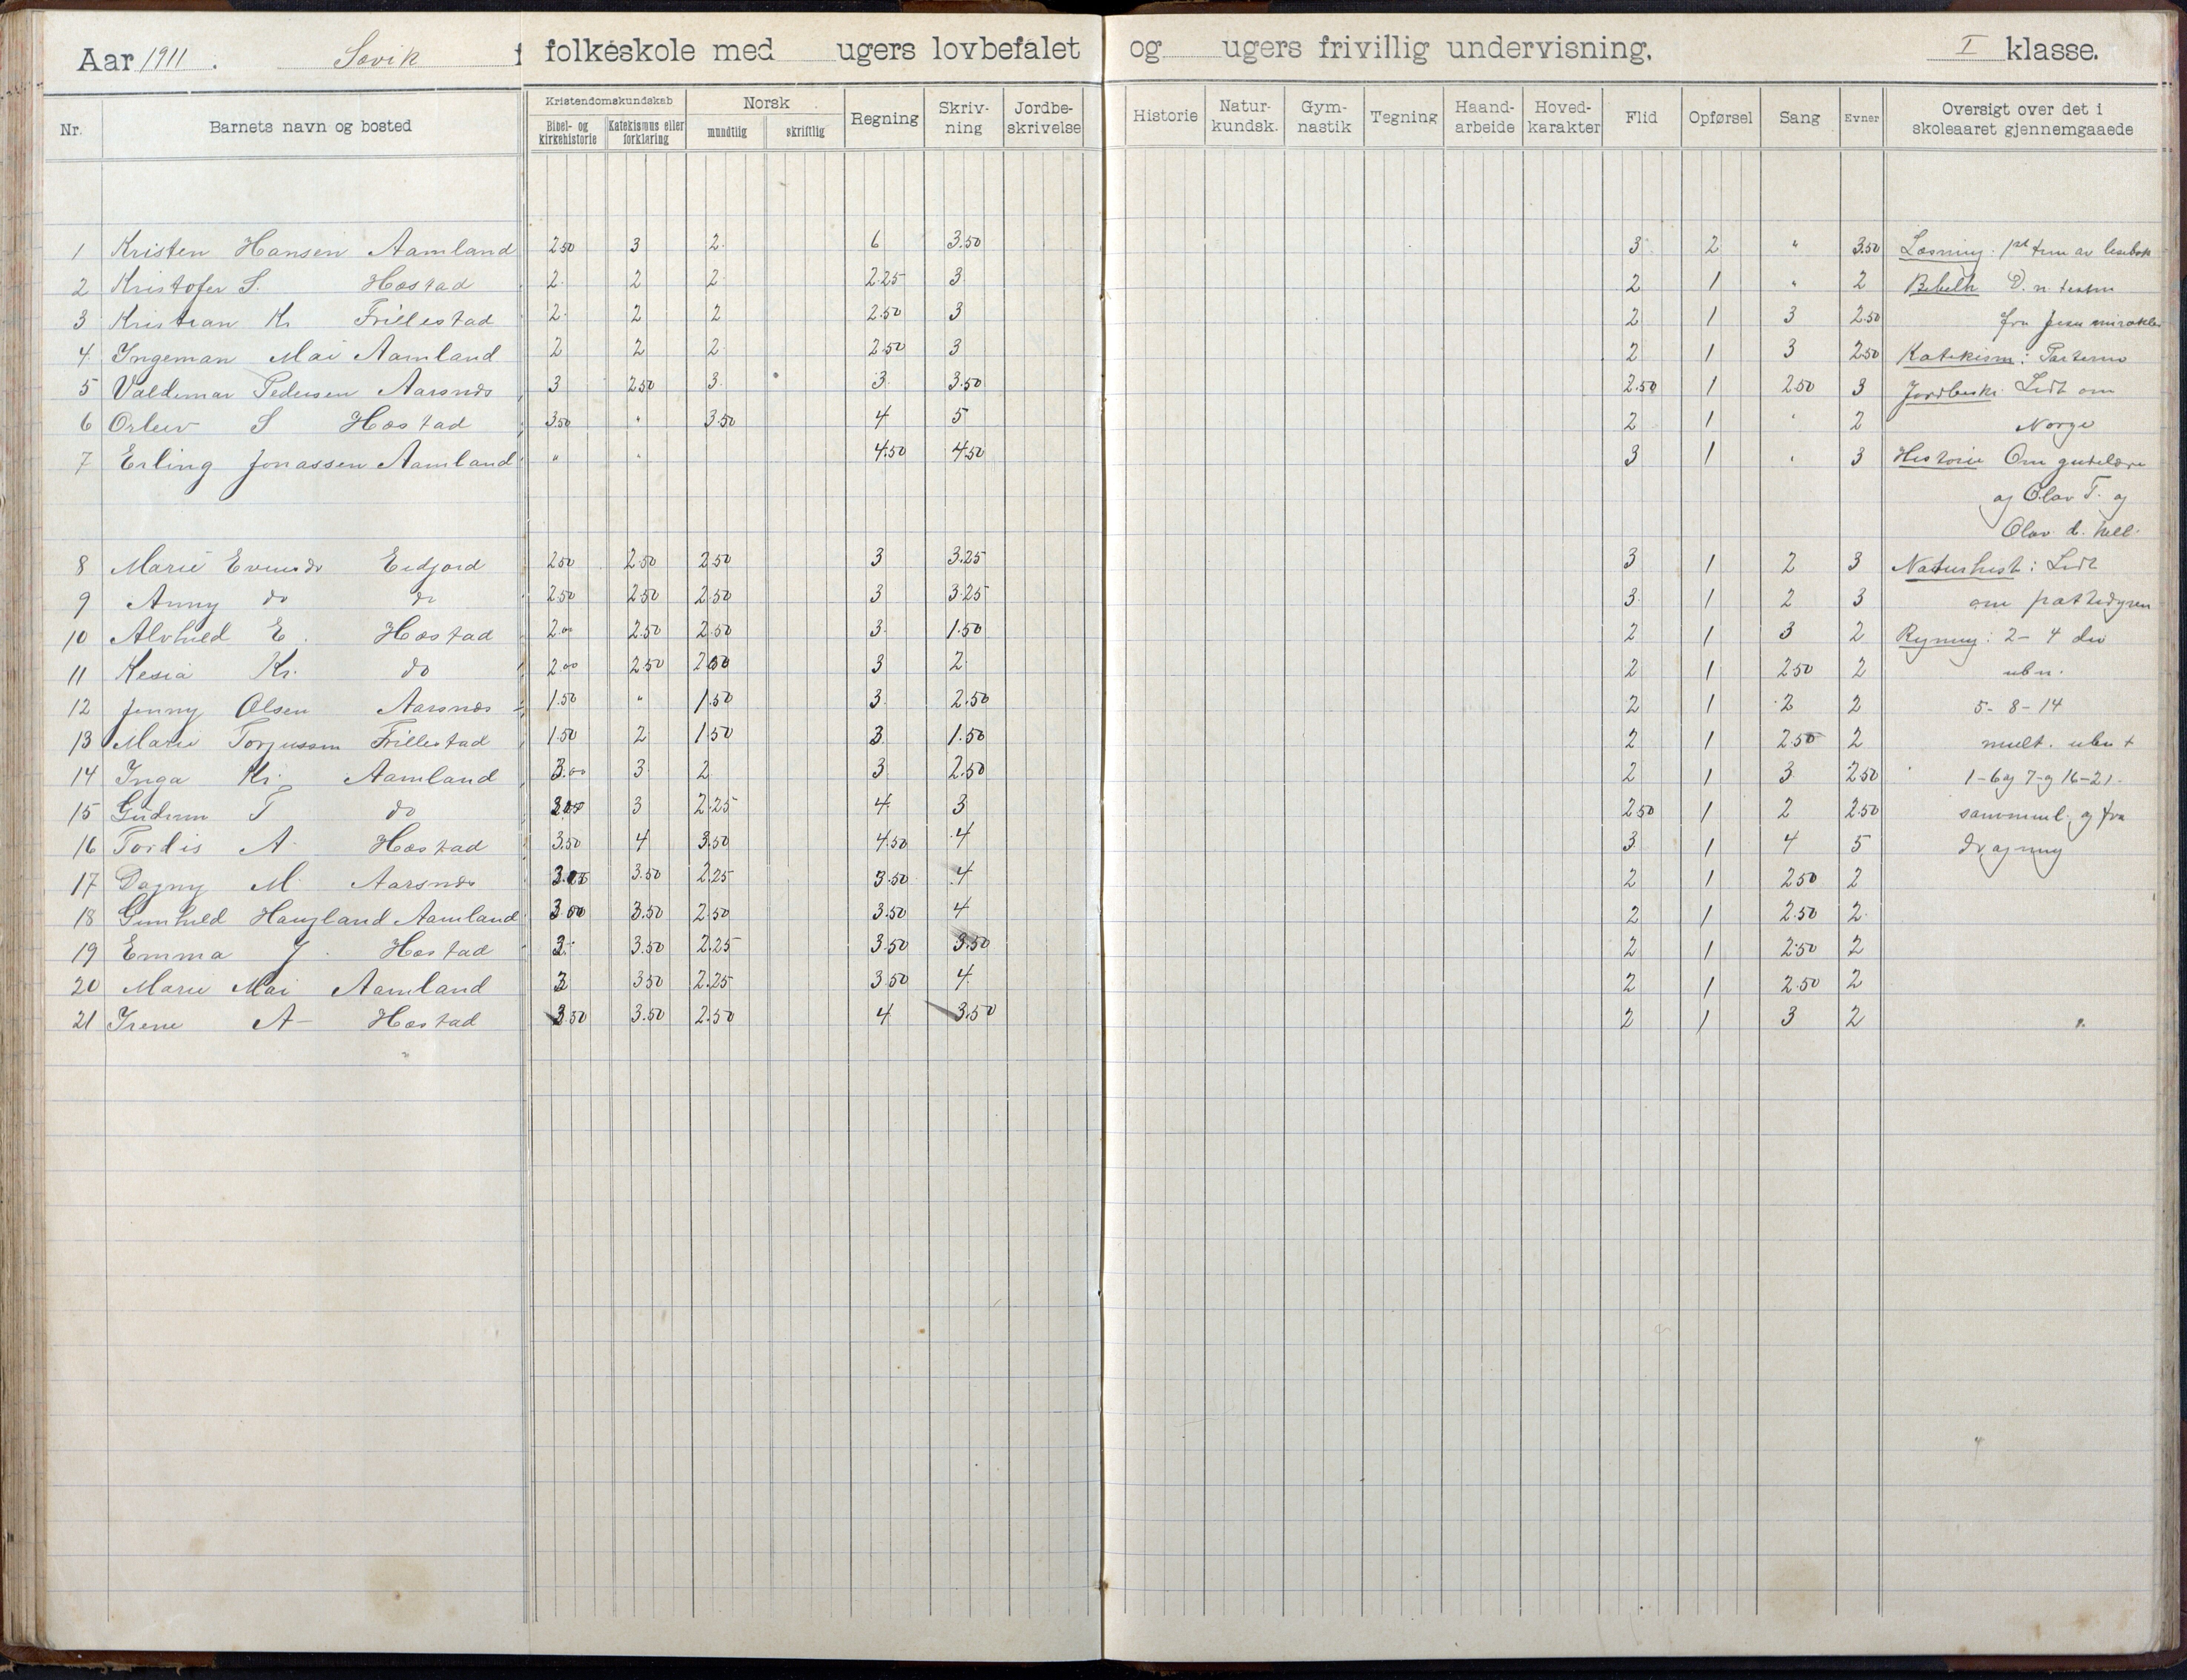 Aar 1911. Søvik folkeskole med ugers lovbefalet og ugers frivillig undervisning. I klasse.
Nr. Barnets navn og bosted Kristendomskundskab Bibel- og kirkehistorie Katekismus eller forklaring Norsk mundtlig skriftlig Regning Skriv-ning Jordbe-skrivelse Historie Natur-kundsk. Gym-nastik Tegning Haand-arbeide Hoved-karakter Flid Opførsel Sang Evner Oversigt over det i skoleaaret gjennemgaaede
1 Kristen Hansen Aamland 2.50 3 2 6 3.50 3 2 " 3.50 Læsning:
2 Kristofer S. Hæstad 2 2 2 2.25 3 2 1 " 2 Bibelh
3 Kristian Kr Frillestad 2 2 2 2.50 3 2 1 3 2.50 fra Jesu mirakler
4 Ingeman Mai Aamland 2 2 2 2.50 3 2 1 3 2.50 Katekism:
5 Valdemar Pedersen Aarsnes 3 2.50 3 3 3.50 2.50 1 2.50 3 Jordbeskr. Lidt om
6 Orleiv S Hæstad 3.50 " 3.50 4 5 2 1 " 2 Norge
7 Erling Jonassen Aamland " " 4.50 4.50 3 1 " 3 Historie Om gudelære
og Olav T. og
Olav d. hell.
8 Marie Evensdr Eidjord 2.50 2.50 2.50 3 3.25 3 1 2 3 Naturhist: Lidt
9 Anny do do 2.50 2.50 2.50 3 3.25 3 1 2 3 om pattedyren
10 Alvhild E. Hæstad 2.00 2.50 2.50 3 1.50 2 1 3 2 Regning: 2-4 de
11 Kesia Kr. do 2.00 2.50 2.50 3 2 2 1 2.50 2 ubn.
12 Jenny Olsen Aarsnes 1.50 " 1.50 3 2.50 2 1 2 2 5-8-14
13 Marie Torjussen Frillestad 1.50 2 1.50 3 1.50 2 1 2.50 2 mult. ubn +
14 Inga Kr. Aamland 3.00 3 2 3 2.50 2 1 3 2.50 1-6 og 7- og 16-21.
15 Gudrun T do 3 2.25 4 3 2.50 1 2 2.50 sammenl. og fra
16 Tordis A. Hæstad 3.50 4 3.50 4.50 4 3 1 4 5 dragning
17 Dagny M. Aarsnes 3.50 2.25 3.50 4 2 1 2.50 2
18 Gunhild Haugland Aamland 3.00 3.50 2.50 3.50 4 2 1 2.50 2
19 Emma J. Hæstad 3 3.50 2.25 3.50 3.50 2 1 2.50 2
20 Marie Mai Aamland 3 3.50 2.25 3.50 4 2 1 2.50 2
21 Irene A Hæstad 3.50 3.50 2.50 4 3.50 2 1 3 2